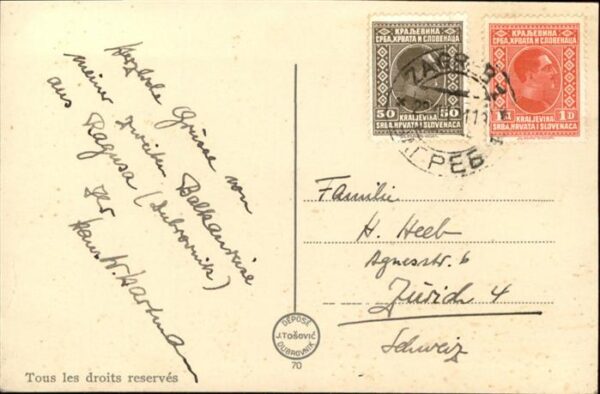 Herzliche Grüsse von
meiner zweiten Balkanreise
aus Ragusa (Dubrovnik)
Ihr
Hans W. Hartmann
КРАЉЕВИНА
СРБА, ХРВАТА И СЛОВЕНАЦА
50 50
KRALJEVINA
SRBA, HRVATA I SLOVENACA
КРАЉЕВИНА
СРБА, ХРВАТА И СЛОВЕНАЦА
1 D
KRALJEVINA
SRBA, HRVATA I SLOVENACA
ZAGREB
ЗАГРЕБ
Familie
H. Heeb
Agnesstr. 6
Zürich 4
Schweiz
DÉPOSÉ
J. TOŠOVIĆ
DUBROVNIK
70
Tous les droits reservés